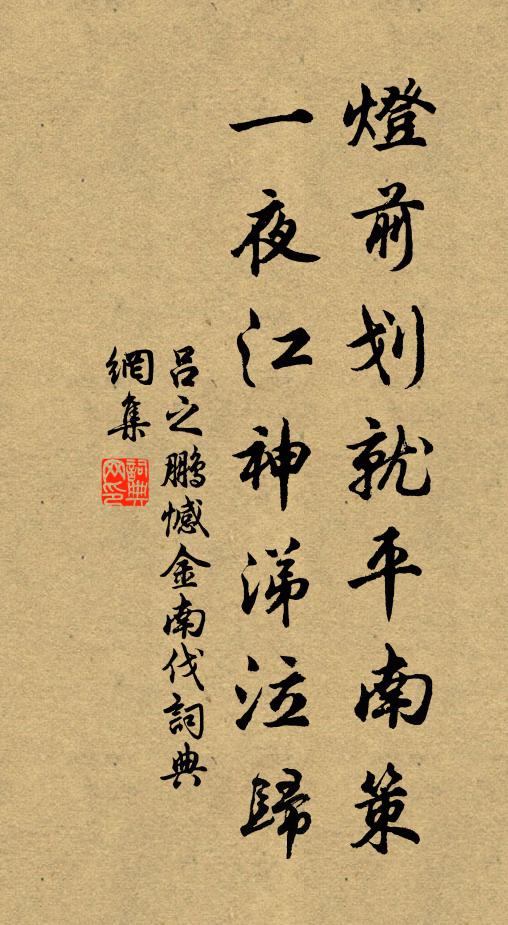 燈前划就平南策
一夜江神涕泣歸
呂之鵬憾金南伐詞典
網集
詞典網印